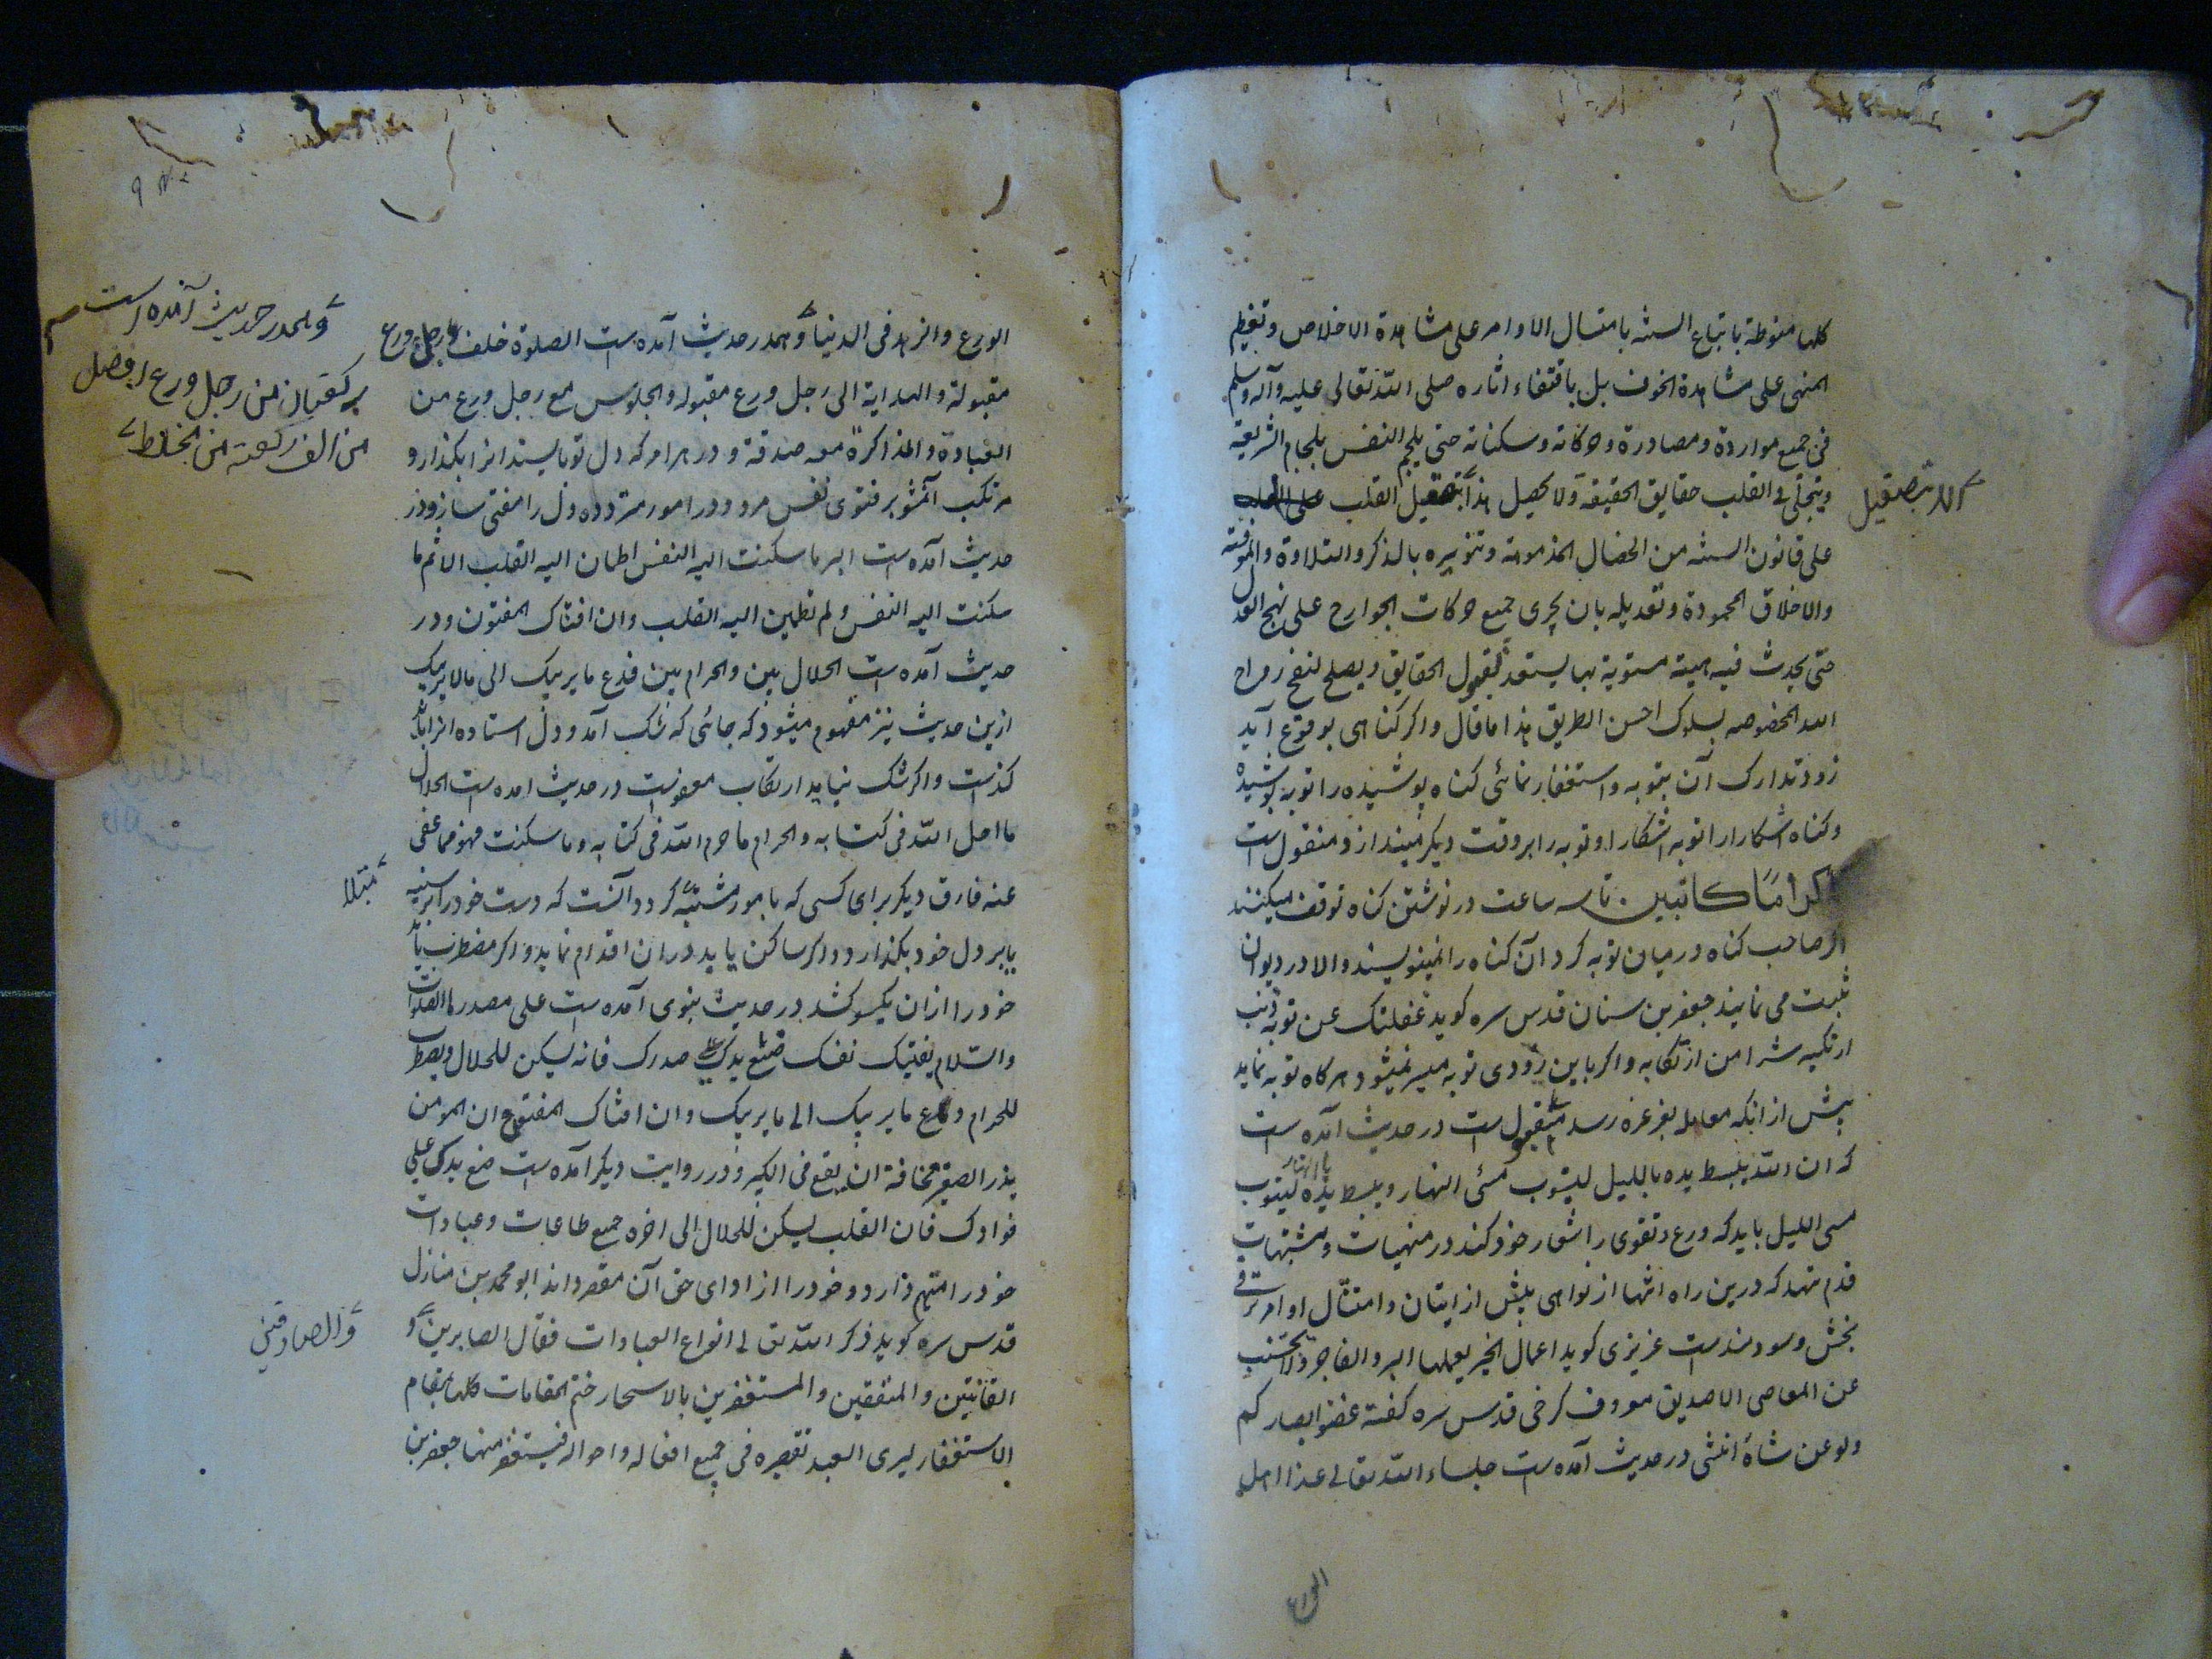 کلها منوطة باتباع السنه بامتثال الاوامر علی مشاهدة الاخلاص وتعظیم
المنهی علی مشاهدة الخوف بل باقتفاء اثاره صلی الله تعالی علیه وآله وسلم
فی جمیع موارده ومصادره وحرکاته وسکناته حتی یلجم النفس بلجام الشریعة
ویتجلی فی القلب حقایق الحقیقة ولا یحصل هذا بتصقیل القلب
الا بتصقیل
علی قانون السنه من الخصال المذمومة وتنویره بالذکر والتلاوة والمعرفة
والاخلاق المحمودة وتعدیله بان یجری جمیع حرکات الجوارح علی نهج العدل
حتی یحدث فیه هیئة مستویة بها یستعد لقبول الحقایق ویصلح لنفخ روح
الله المخصوصه بسلوک احسن الطریق هذا ما قال واکر کناهی بوقوع آید
زود تدارک آن بتوبه واستغفار نمائی کناه پوشیده را توبه پوشیده
وکناه اشکارا را توبه اشکارا وتوبه را بروقت دیکر نیندازد منقول است
کراما کاتبین تا سه ساعت در نوشتن کناه توقف میکنند
اکر صاحب کناه درمیان توبه کرد آن کناه را نمینویسند والا در دیوان
ثبت می نمایند جعفر بن سنان قدس سره کوید غفلتک عن توبة ذنب
ارتکبته شرا من ارتکابه واکر باین زودی توبه میسر نمیشود هرکاه توبه نماید
پیش از انکه معامله بغرغره رسد مقبول ست در حدیث آمده است
که ان الله یبسط یده باللیل لیتوب مسئی النهار ویبسط یده بالنهار لیتوب
مسی اللیل باید که ورع وتقوی را شعار خود کند در منهیات ومشتبهات
قدم ننهد که درین راه انتها از نواهی بیش از اتیان وامتثال اوامر ترقی
بخش وسودمندست عزیزی کوید اعمال الخیر یعملها البر والفاجر ولا یجتنب
عن المعاصی الا صدیق معروف کرخی قدس سره کفته غضوا ابصارکم
ولو عن شاة انثی در حدیث آمده ست جلساء الله تعالی غدا اهل
الورع
الورع والزهد فی الدنیا وهم در حدیث آمده ست الصلوة خلف رجل ورع
مقبولة والهدایة الی رجل ورع مقبوله والجلوس مع رجل ورع من
العبادة والمذاکرة معه صدقة و در هرامر که دل تو نایستد انرا بکذار و
مرتکب آن مشو بر فتوی نفس مرو ودر امور متردده دل را مفتی ساز و در
حدیث آمده ست البر ما سکنت الیه النفس اطمان الیه القلب الاثم ما
سکنت الیه النفس ولم تطمین الیه القلب وان افتاک المفتون ودر
حدیث آمده ست الحلال بین والحرام بین فدع ما یریبک الی ما لا یریبک
ازین حدیث نیز مفهوم میشود که جائی که شک آمد ودل استاده انرا باید
کذاشت واکر شک نیاید ارتکاب معفوست در حدیث امده ست الحلال
ما احل الله فی کتابه والحرام ما حرم الله فی کتابه وما سکنت فهو مما عفی
عنه فارق دیکر برای کسی که بامور مشتبه کردد آنست که دست خود را بر سینه
مبتلا
یا بر دل خود بکذارد واکر ساکن یابد دران اقدام نماید واکر مضطرب یابد
خود را ازان یکسو کشد در حدیث نبوی آمده ست علی مصدرها الصلوات
والسلام یفتیک نفسک ضع یدک علی صدرک فانه یسکن للحلال ویضطرب
للحرام دع ما یریبک الی ما یریبک وان افتاک المفتون ان المومن
یذر الصغیر مخافة ان یقع فی الکبیر ودر روایت دیکر آمده ست ضع یدک علی
فوادک فان القلب یسکن للحلال الی اخره جمیع طاعات وعبادات
خود را متهم دارد وخود را از ادای حق آن مقصر داند ابو محمد بن منازل
قدس سره کوید ذکر الله تعالی انواع العبادات فقال الصابرین و
والصادقین
القانتین والمنفقین والمستغفرین بالاسحار ختم المقامات کلها بمقام
الاستغفار لیری العبد تقصیره فی جمیع افعاله واحواله فیستغفر منها جعفر بن
وهم در حدیث آمده است
رکعتان من رجل ورع افضل
من الف رکعة من المخلط